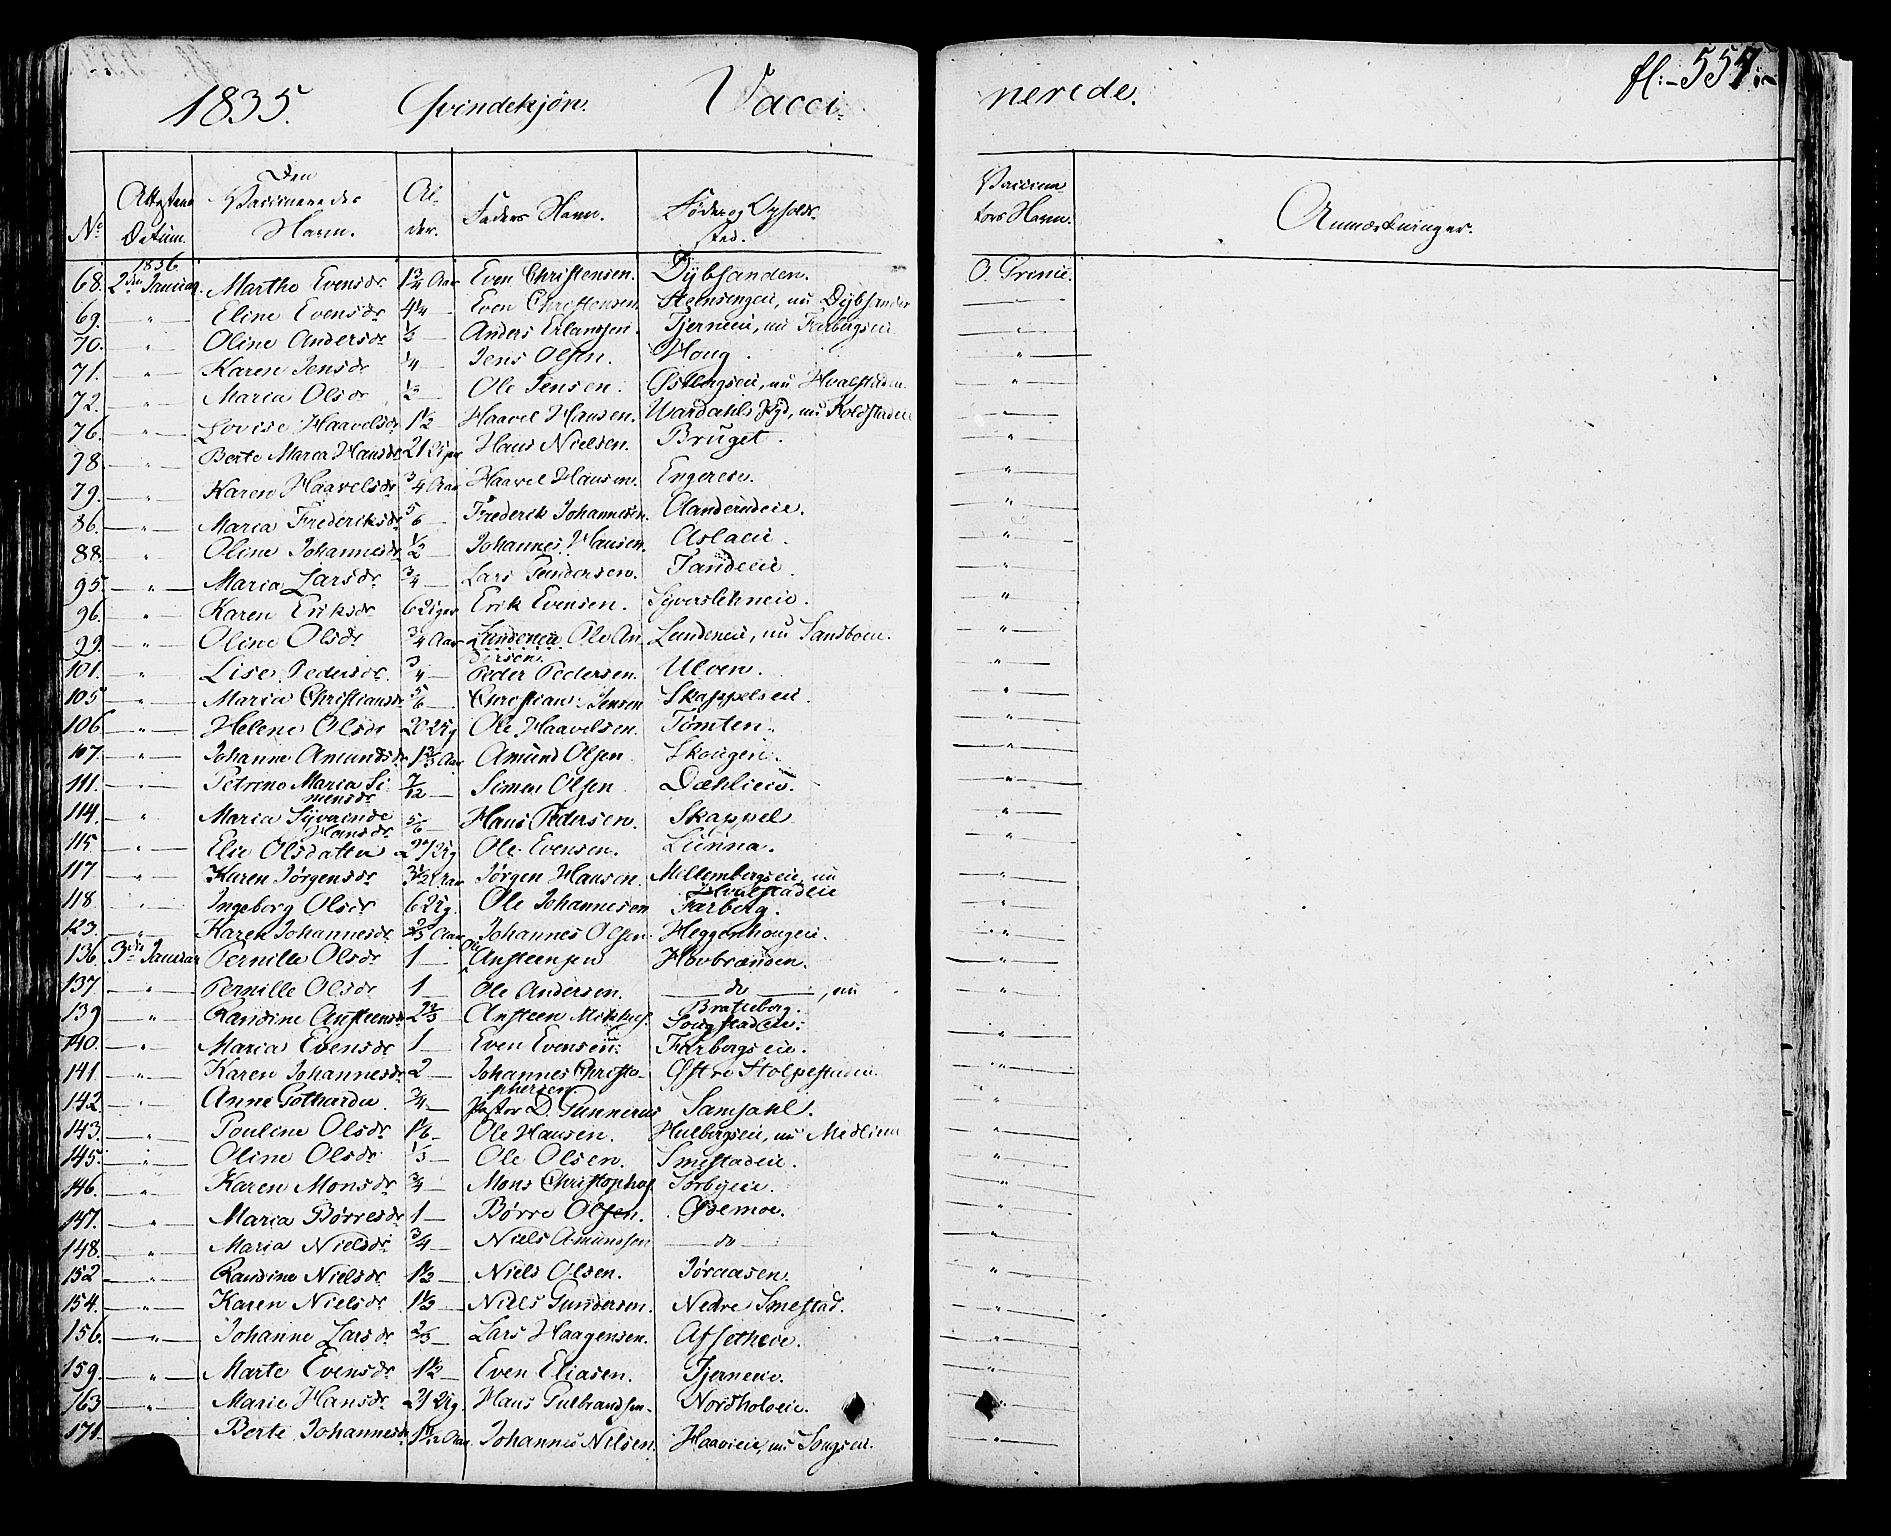 1835. Qvindekjøn. Vacci-
nerede. fl:-557:-
No
Attestens Datum.
Den Vaccineredes Navn.
Alder.
Faders Navn.
Føde og Opholds sted.
Vaccinators Navn.
Anmærkninger.
1836
68. 2den Januar. Marthe Evensdr 1¾ Aar Even Christensen. Dybsanden.
69. — " — Eline Evensdr 4¼ — Even Christensen Steensengeie, nu Dybsanden
70. — " — Oline Andersdr ½ — Anders Erlandsen. Tjerneeie, nu Farbergseie
71. — " — Karen Jensdr ¼ — Jens Olsen. Houg.
72. — " — Maria Olsdr ½ — Ole Jensen. Østbergseie, nu Hvalstadeie
76. — " — Lovise Haavelsdr 1½ Haavel Hansen. Uardahls Pld, nu Koldstadeie
78. — " — Berte Maria Hansdr 21 Uger Hans Nielsen. Bruget.
79. — " — Karen Haavelsdr ¾ Aar Haavel Hansen. Engereie.
86. — " — Maria Frederiksdr 5/6 — Frederik Johannesen. Aanderudeie.
88. — " — Oline Johannesdr ½ — Johannes Hansen. Aslaeie.
95. — " — Maria Larsdr ¾ — Lars Gundersen. Tandeeie.
96. — " — Karen Eriksdr 6 Uger Erik Evensen. Syverslehneie.
99. — " — Oline Olsdr ¾ Aar Lundeneie Ole An
dersen. Lundeneie, nu Sandboen.
101. — " — Lise Pedersdr ¾ — Peder Pedersen. Ulven.
105. — " — Maria Christiansdr 5/6 — Christian Jensen Skappelseie.
106. — " — Helene Olsdr 20 Ug Ole Haavelsen. Tømten.
107. — " — Johanne Amundsdr 1⅔ Aar Amund Olsen Skougeie.
111. — " — Petrine Maria Si
mensdr 7/12 — Simen Olsen Dæhlieie.
114. — " — Maria Syverine
Hansdr 5/6 — Hans Pedersen. Skappel
115 — " — Elie Olsdatter 27 Ug Ole Evensen. Lunna.
117 — " — Karen Jørgensdr 3½ Aar Jørgen Hansen. Mellembergseie, nu
Hvalstadeie
118. — " — Ingeborg Olsdr 6 Ug. Ole Johannesen Farberg.
123. — " — Karen Johannesdr ⅔ Aar Johannes Olsen. Heggenhougeie.
136. 3die Januar Pernille Olsdr 1 — Ole Ansteensen Hovbrænden.
137 — " — Pernille Olsdr 1 — Ole Andersen. — do —, nu
Bratteberg.
139 — " — Randine Ansteensdr 2⅔ Ansteen Mikkels. Sougstadeie.
140. — " — Maria Evensdr 1 — Even Evensen. Farbergseie.
141. — " — Karen Johannesdr 2 — Johannes Christo-
phersen Østre Stolpestadeie.
142. — " — Anne Gotharda ¾ — Pastor D. Gunnerus Samdahl.
143. — " — Pouline Olsdr 1⅙ — Ole Hansen. Hulbergseie, nu Medlieie
145. — " — Oline Olsdr ⅓ — Ole Olsen. Smestadeie.
146. — " — Karen Monsdr ¾ — Mons Christophers. Sørbyeie.
147. — " — Maria Børresdr 1 — Børre Olsen. Ødemoe.
148. — " — Maria Nielsdr ¾ — Niels Amundsen — do —
152 — " — Randine Nielsdr 1½ — Niels Olsen. Jøraasen.
154. — " — Karen Nielsdr 1⅓ — Niels Gundersen. Nedre Smestad.
156. — " — Johanne Larsdr ⅔ — Lars Haagensen. Afsetheie.
159. — " — Marte Evensdr 1½ — Even Eliasen. Tjerneeie.
163 — " — Marie Hansdr 21 Ug. Hans Gulbrandsen. Nordholeie.
171. — Berte Johannesdr Aar Johannes Nilsen. Haavieie, nu Sougseie.
O. Grønie.